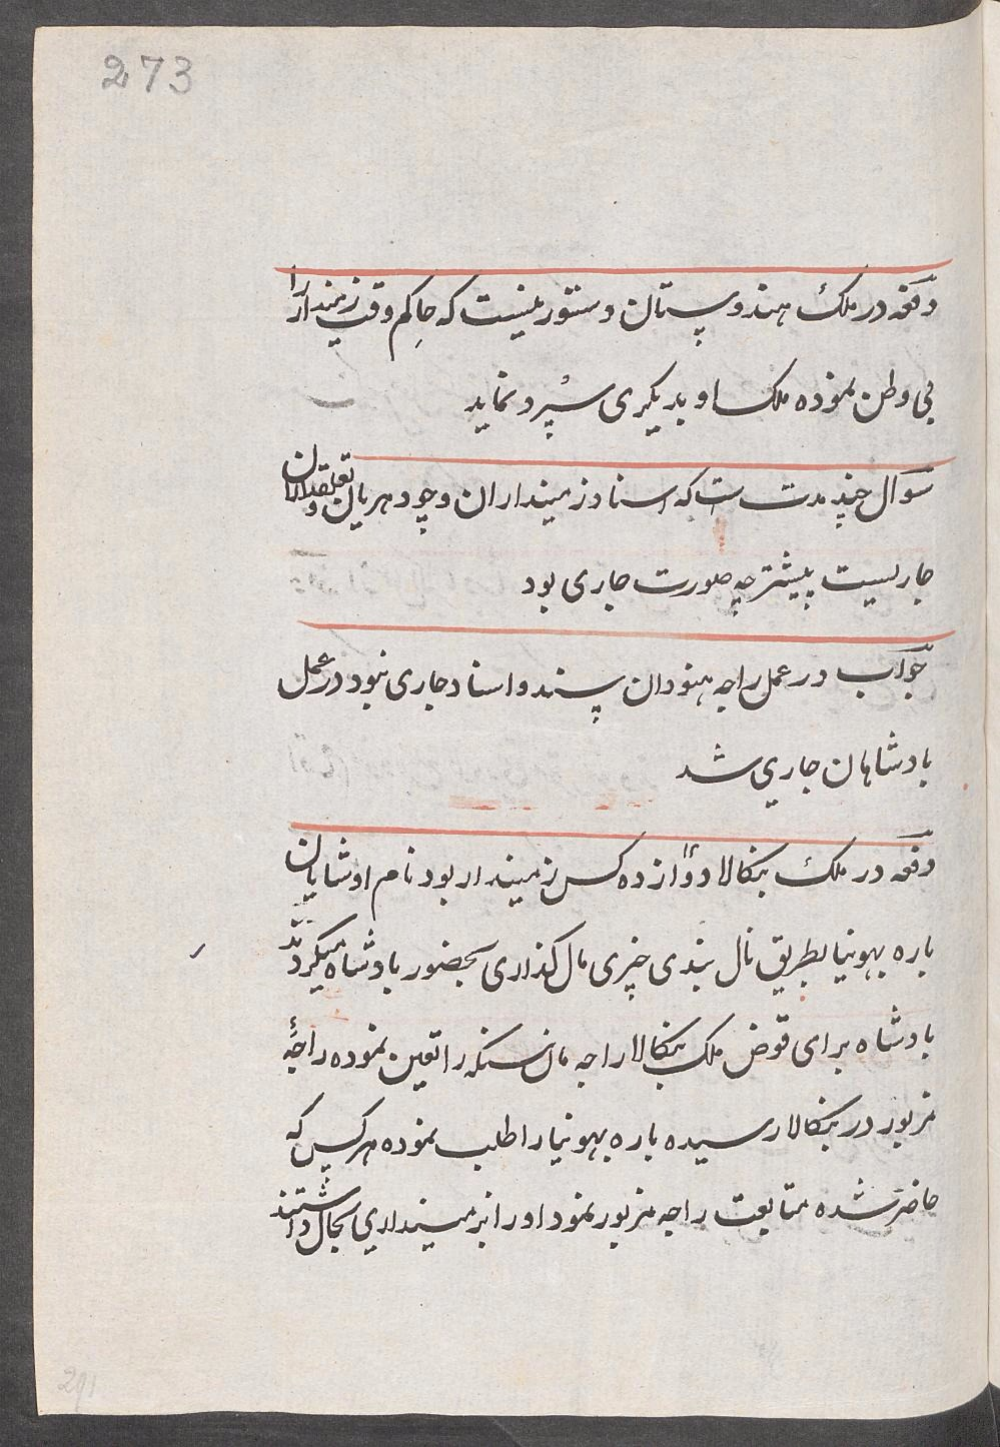 273
دفعه در ملک هندوستان دستور نیست که حاکم وقت زمیندار را
بی وطن نموده ملک او بدیگری سپرد نماید
سوال چند مدت ست که اسناد زمینداران و چودهریان و تعلقداران
جاریست پیشتر چه صورت جاری بود
جواب در عمل راجه هنودان سند و اسناد جاری نبود در عمل
بادشاهان جاری شد
دفعه در ملک بنکالا دوازده کس زمیندار بود نام اوشایان
باره بهونیا بطریق نال بندی چیزی مال کذاری بحضور بادشاه میکردند
بادشاه برای قوض ملک بنکالا راجه مان سنکه را تعین نموده راجهٔ
مزبور در بنکالا رسیده باره بهونیا را طلب نموده هر کس که
حاضر شده متابعت راجه مزبور نمود او را بزمینداری بحال داشتند
291